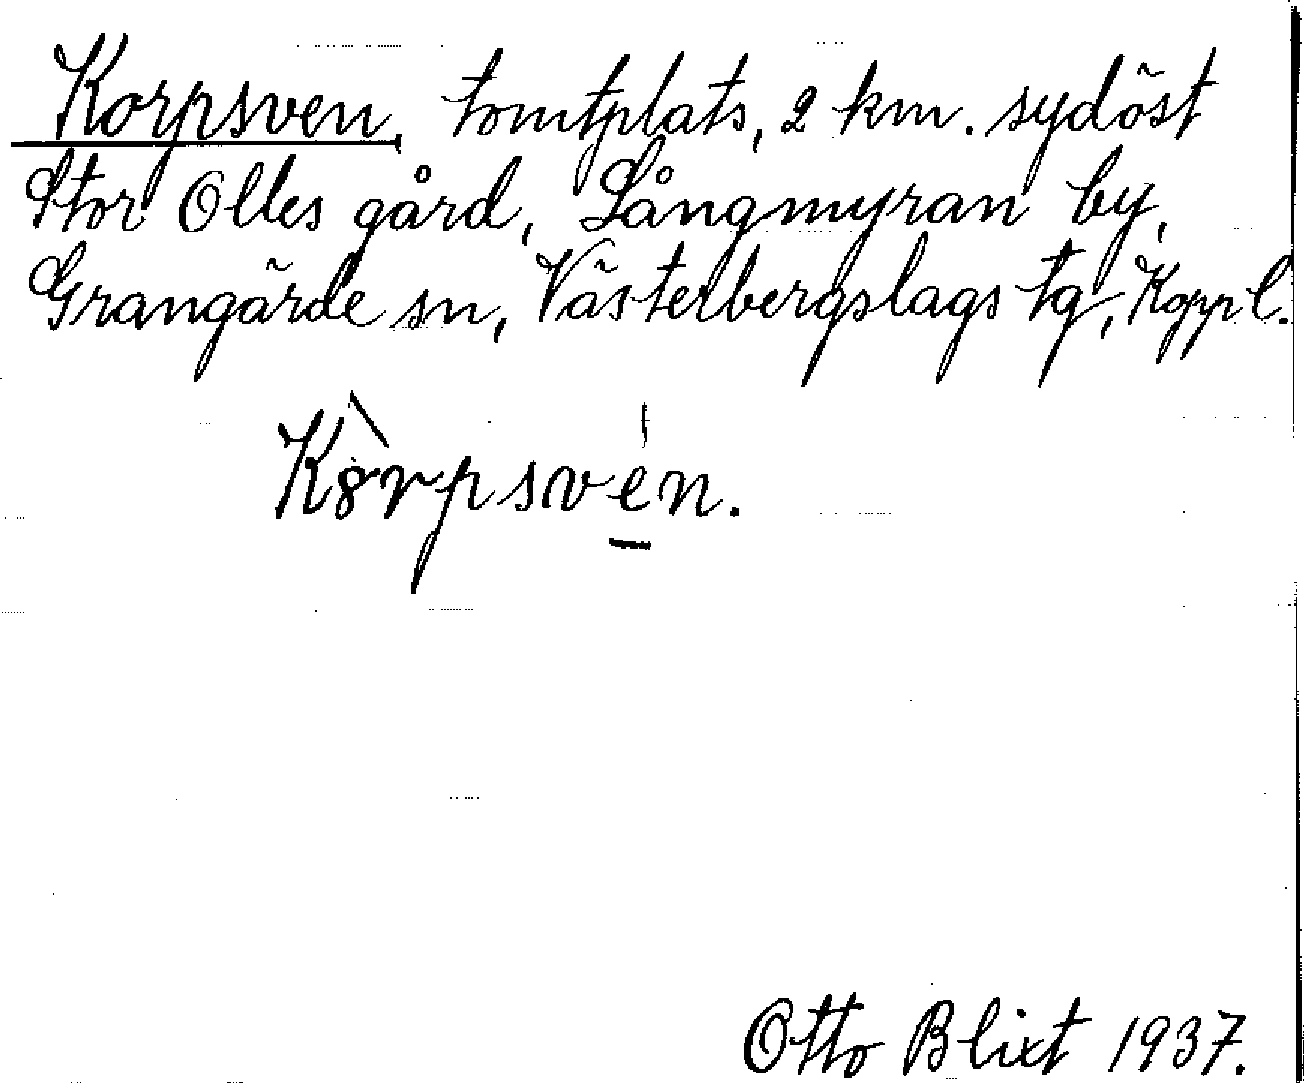 Korpsven, tomtplats, 2 km. sydöst
Stor Olles gård, Långmyran by,
Grangärde sn, Västerbergslags tg, Koppl.
Kȯrpsven.
Otto Blixt 1937.